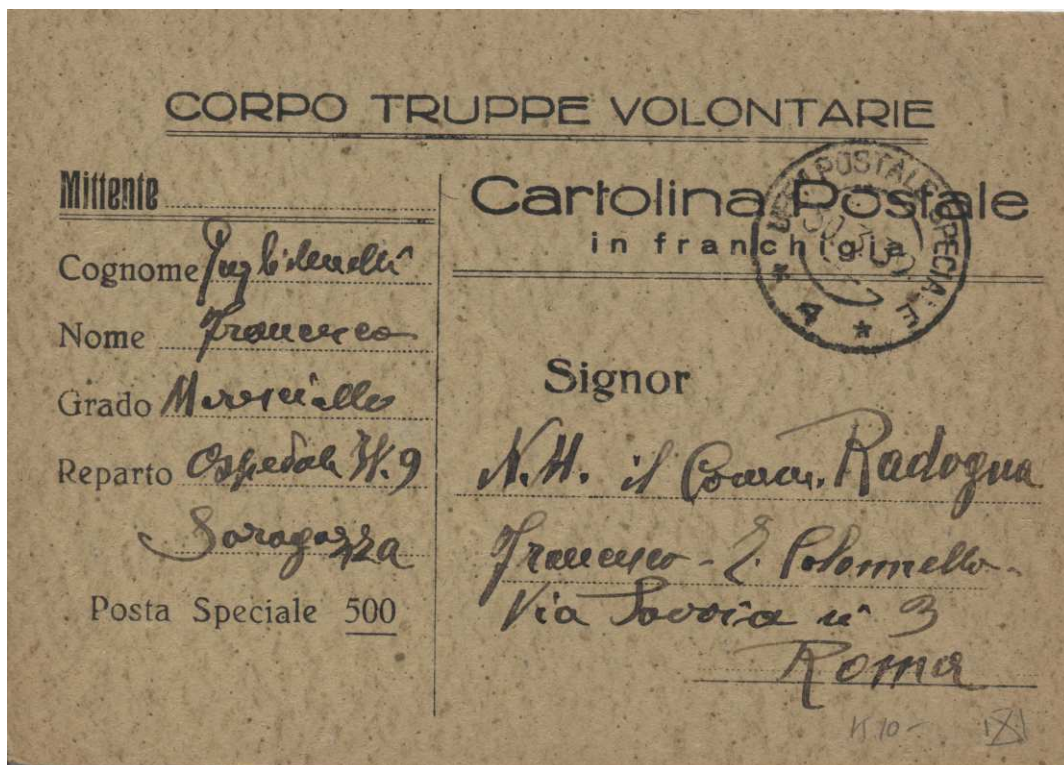 CORPO TRUPPE VOLONTARIE
Mittente
Cognome
Nome Francesco
Grado Maresciallo
Reparto Ospedale
Saragozza
Posta Speciale 500
Cartolina Postale
in franchigia
POSTALE SPECIALE
4
Signor
N.H. il Comm. Radogna
Francesco - Colonnello -
Via Savoia n° 3
Roma
K 10-